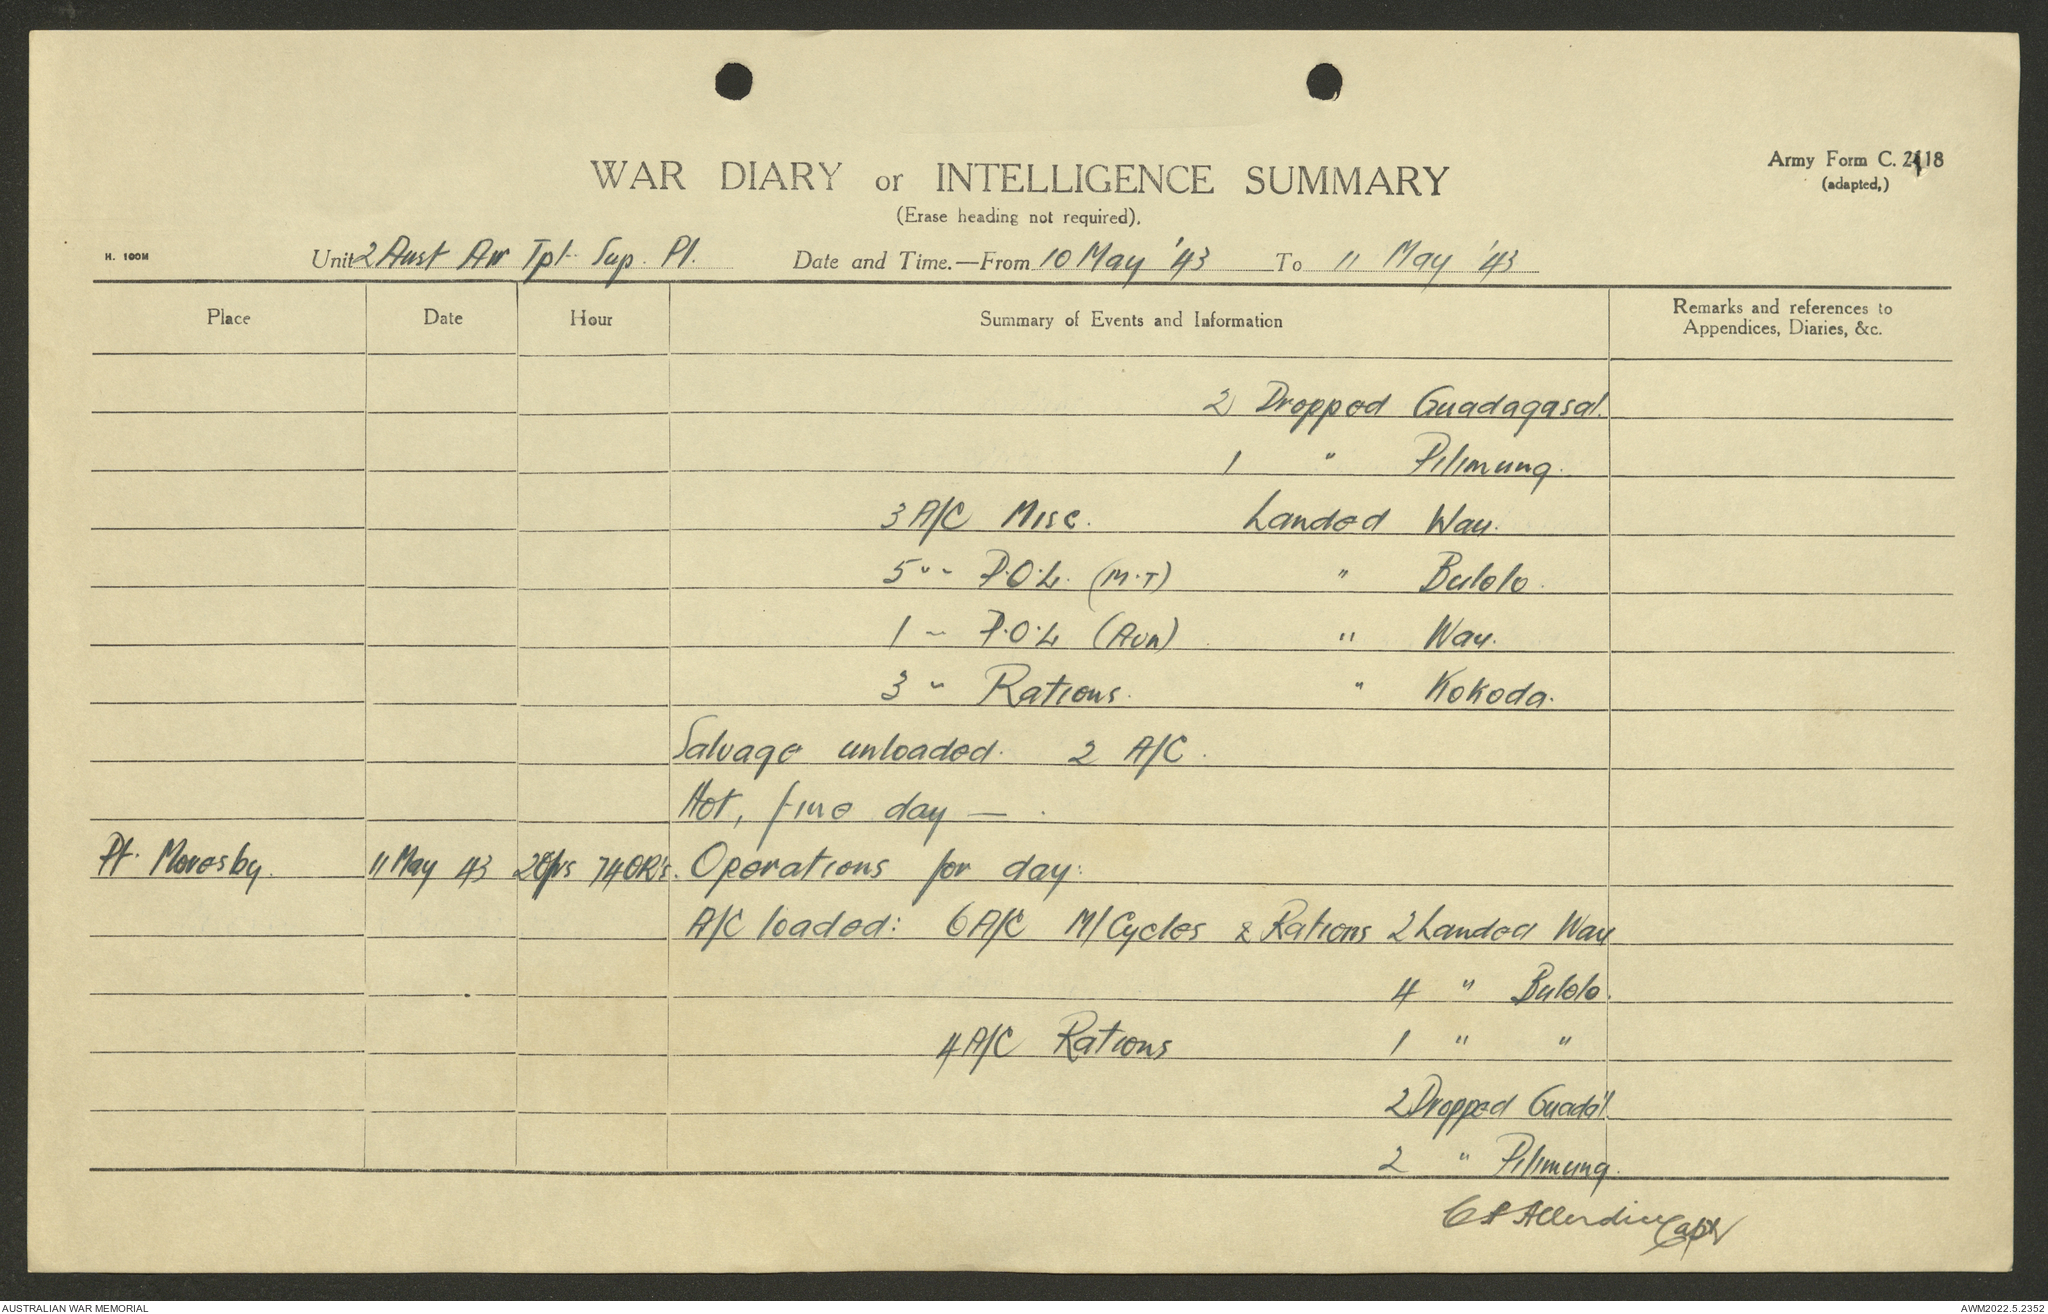 WAR DIARY or INTELLIGENCE SUMMARY
Army Form C. 2118
(adapted,)
(Erase heading not required).
H. 100M
Unit 2 Aust Air Tpt Sup. Pl. Date and Time.—From 10 May '43 To 11 May '43
Place Date Hour Summary of Events and Information Remarks and references to Appendices, Diaries, &c.
2 Dropped Guadagasal.
1 " Pilimung.
3 A/C Misc. Landed Wau.
5 " " P.O.L. (M.T) " Bulolo.
1 " P.O.L (Avn) " Wau.
3 " Rations. " Kokoda.
Salvage unloaded. 2 A/C.
Hot, fine day —.
Pt. Moresby. 11 May 43 2 Offrs 74 OR's. Operations for day:
A/C loaded: 6 A/C M/Cycles & Rations 2 Landed Wau
4 " Bulolo.
4 A/C Rations 1 " "
2 Dropped Guada'l.
2 " Pilimung.
Allerdice Capt
AUSTRALIAN WAR MEMORIAL
AWM2022.5.2352